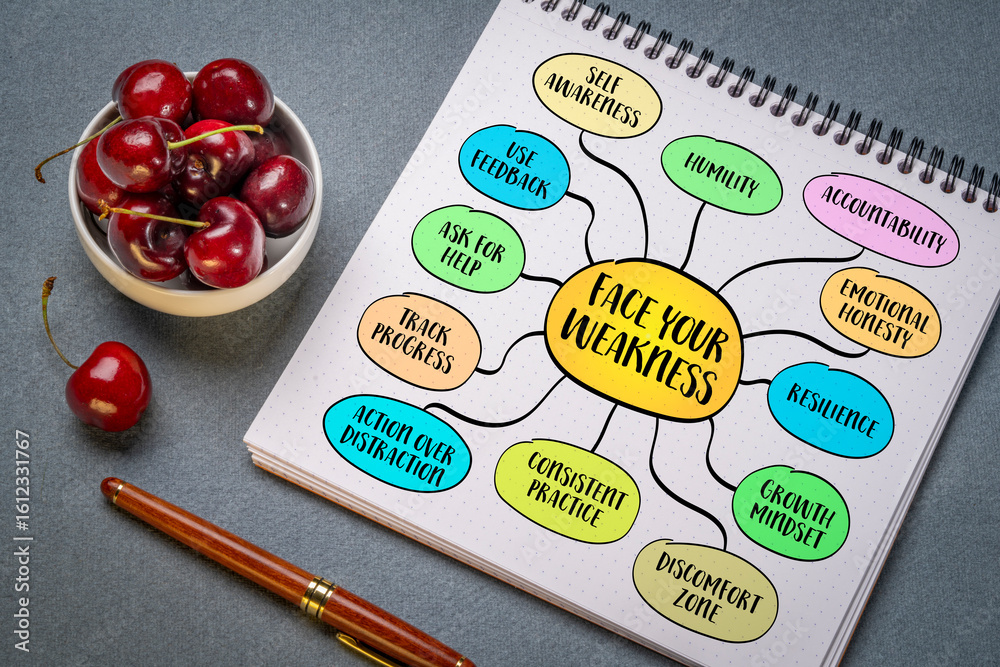 SELF
AWARENESS
USE
FEEDBACK
HUMILITY
ACCOUNTABILITY
ASK FOR
HELP
EMOTIONAL
HONESTY
FACE YOUR
WEAKNESS
TRACK
PROGRESS
RESILIENCE
ACTION OVER
DISTRACTION
CONSISTENT
PRACTICE
GROWTH
MINDSET
DISCOMFORT
ZONE
Adobe Stock | #1612331767